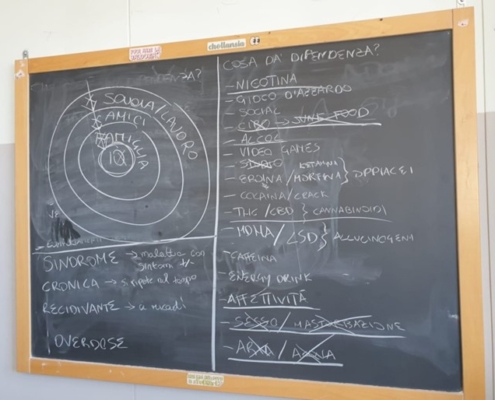 chellomio
COSA DA DIPENDENZA?
- NICOTINA
- GIOCO D'AZZARDO
- SOCIAL
- CIBO → JUNK FOOD
- ALCOL
- VIDEO GAMES
- EROINA / MORFINA } OPPIACEI
- COCAINA / CRACK
- THC / CBD } CANNABINOIDI
- MDMA / LSD } ALLUCINOGENI
- CAFFEINA
- ENERGY DRINK
- AFFETTIVITÀ
- SESSO / MASTURBAZIONE
SCUOLA / LAVORO
AMICI
FAMIGLIA
IO
SINDROME → malattia con
sintomi +/-
CRONICA → si ripete nel tempo
RECIDIVANTE →
OVERDOSE